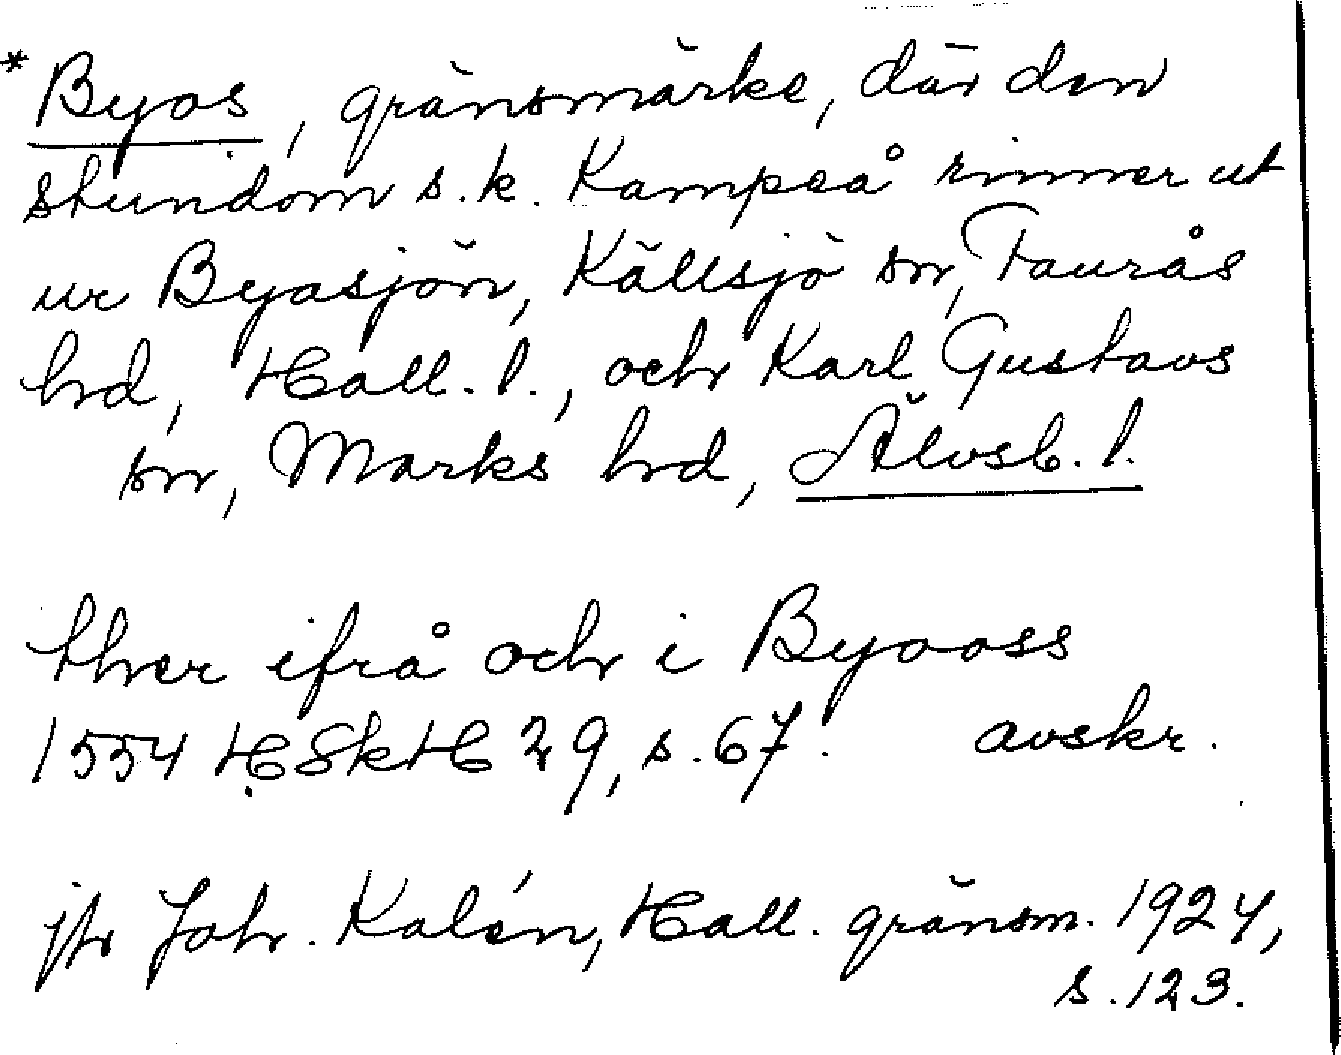 *Byos, gränsmärke, där den
stundom s.k. Kampaå rinner ut
ur Byasjön, Källsjö sn, Faurås
hd, Hall. l., och Karl Gustavs
sn, Marks hd, Älvsb. l.
thær ifrå och i Byooss
1554 HSkH 29, s. 67. avskr.
jfr Joh. Kalén, Hall. gränsm. 1924,
s. 123.